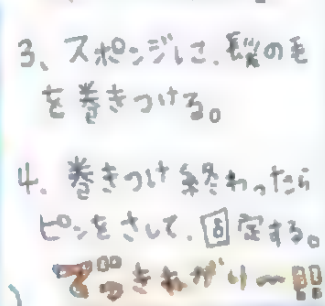 3、スポンジに、髪の毛
を巻きつける。
4、巻きつけ終わったら
ピンをさして、固定する。
できあがりー!!